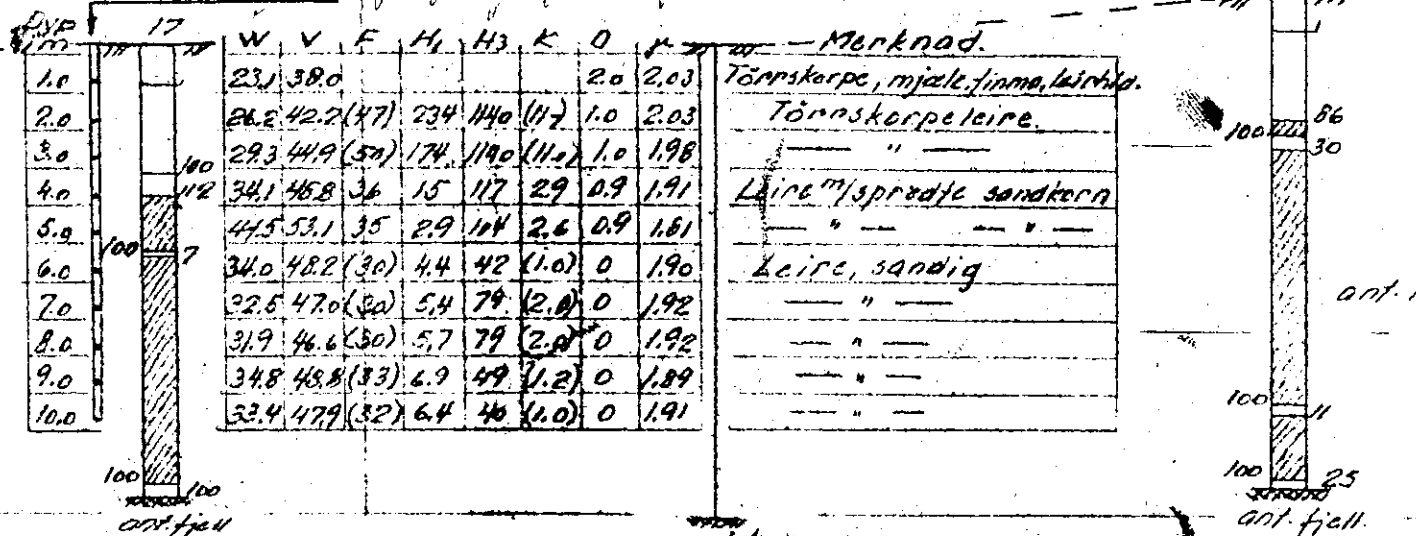 Dyp
i m 17 W V F H₁ H₃ K O γ Merknad.
1.0 23.1 38.0 2.0 2.03 Törrskorpe, mjæle, finmo,
2.0 26.2 42.2 (47) 234 1140 (117) 1.0 2.03 Törrskorpeleire. 86
100
3.0 29.3 44.9 (50) 174 1190 (11.0) 1.0 1.98 — " — 30
100
4.0 112 34.1 46.8 36 15 117 29 0.9 1.91 Leire m/spredte sandkorn
5.0 44.5 53.1 35 2.9 104 2.6 0.9 1.81 — " — — " —
6.0 100 7 34.0 48.2 (30) 4.4 42 (1.0) 0 1.90 Leire, sandig
7.0 32.5 47.0 (30) 5.4 79 (2.0) 0 1.92 — " — ant.
8.0 31.9 46.6 (30) 5.7 79 (2.0) 0 1.92 — " —
9.0 34.8 48.8 (33) 6.9 49 (1.2) 0 1.89 — " —
10.0 33.4 47.9 (32) 6.4 40 (1.0) 0 1.91 — " — 100 11
100 100 100 25
ant. fjell ant. fjell.